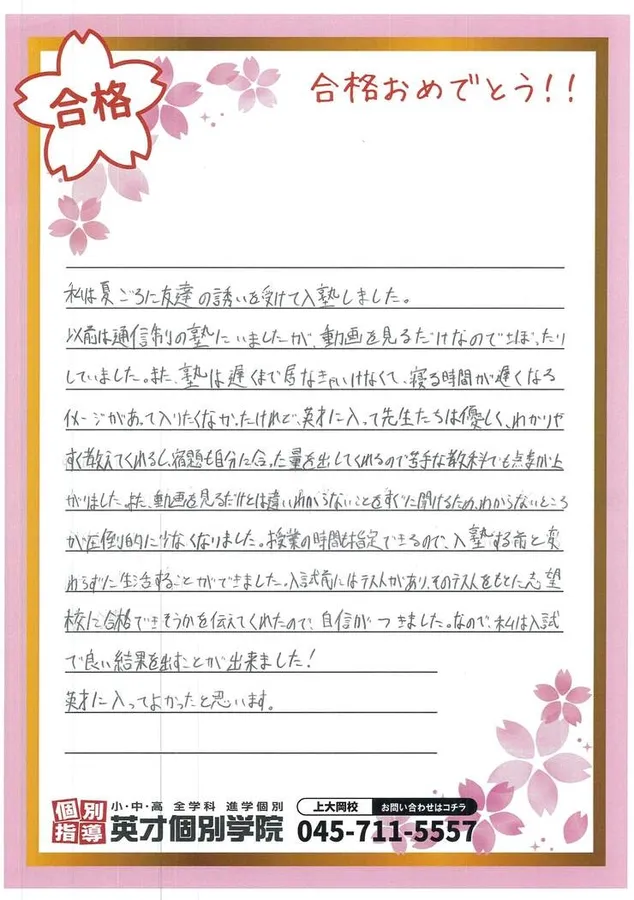 合格
合格おめでとう!!
私は夏ごろに友達の誘いを受けて入塾しました。
以前は通信制の塾にいましたが、動画を見るだけなのでさぼったり
していました。また、塾は遅くまで居なきゃいけなくて、寝る時間が遅くなる
イメージがあって入りたくなかったけれど、英才に入って先生たちは優しく、わかりや
すく教えてくれるし、宿題も自分に合った量を出してくれるので苦手な教科でも点数が上
がりました。また、動画を見るだけとは違いわからないことをすぐに聞けるため、わからないところ
が圧倒的に少なくなりました。授業の時間も指定できるので、入塾する前と変
わらずに生活することができました。入試前にはテストがあり、そのテストをもとに志望
校に合格できそうかを伝えてくれたので、自信がつきました。なので、私は入試
で良い結果を出すことが出来ました!
英才に入ってよかったと思います。
個別指導 小・中・高 全学科 進学個別
英才個別学院
上大岡校 お問い合わせはコチラ
045-711-5557